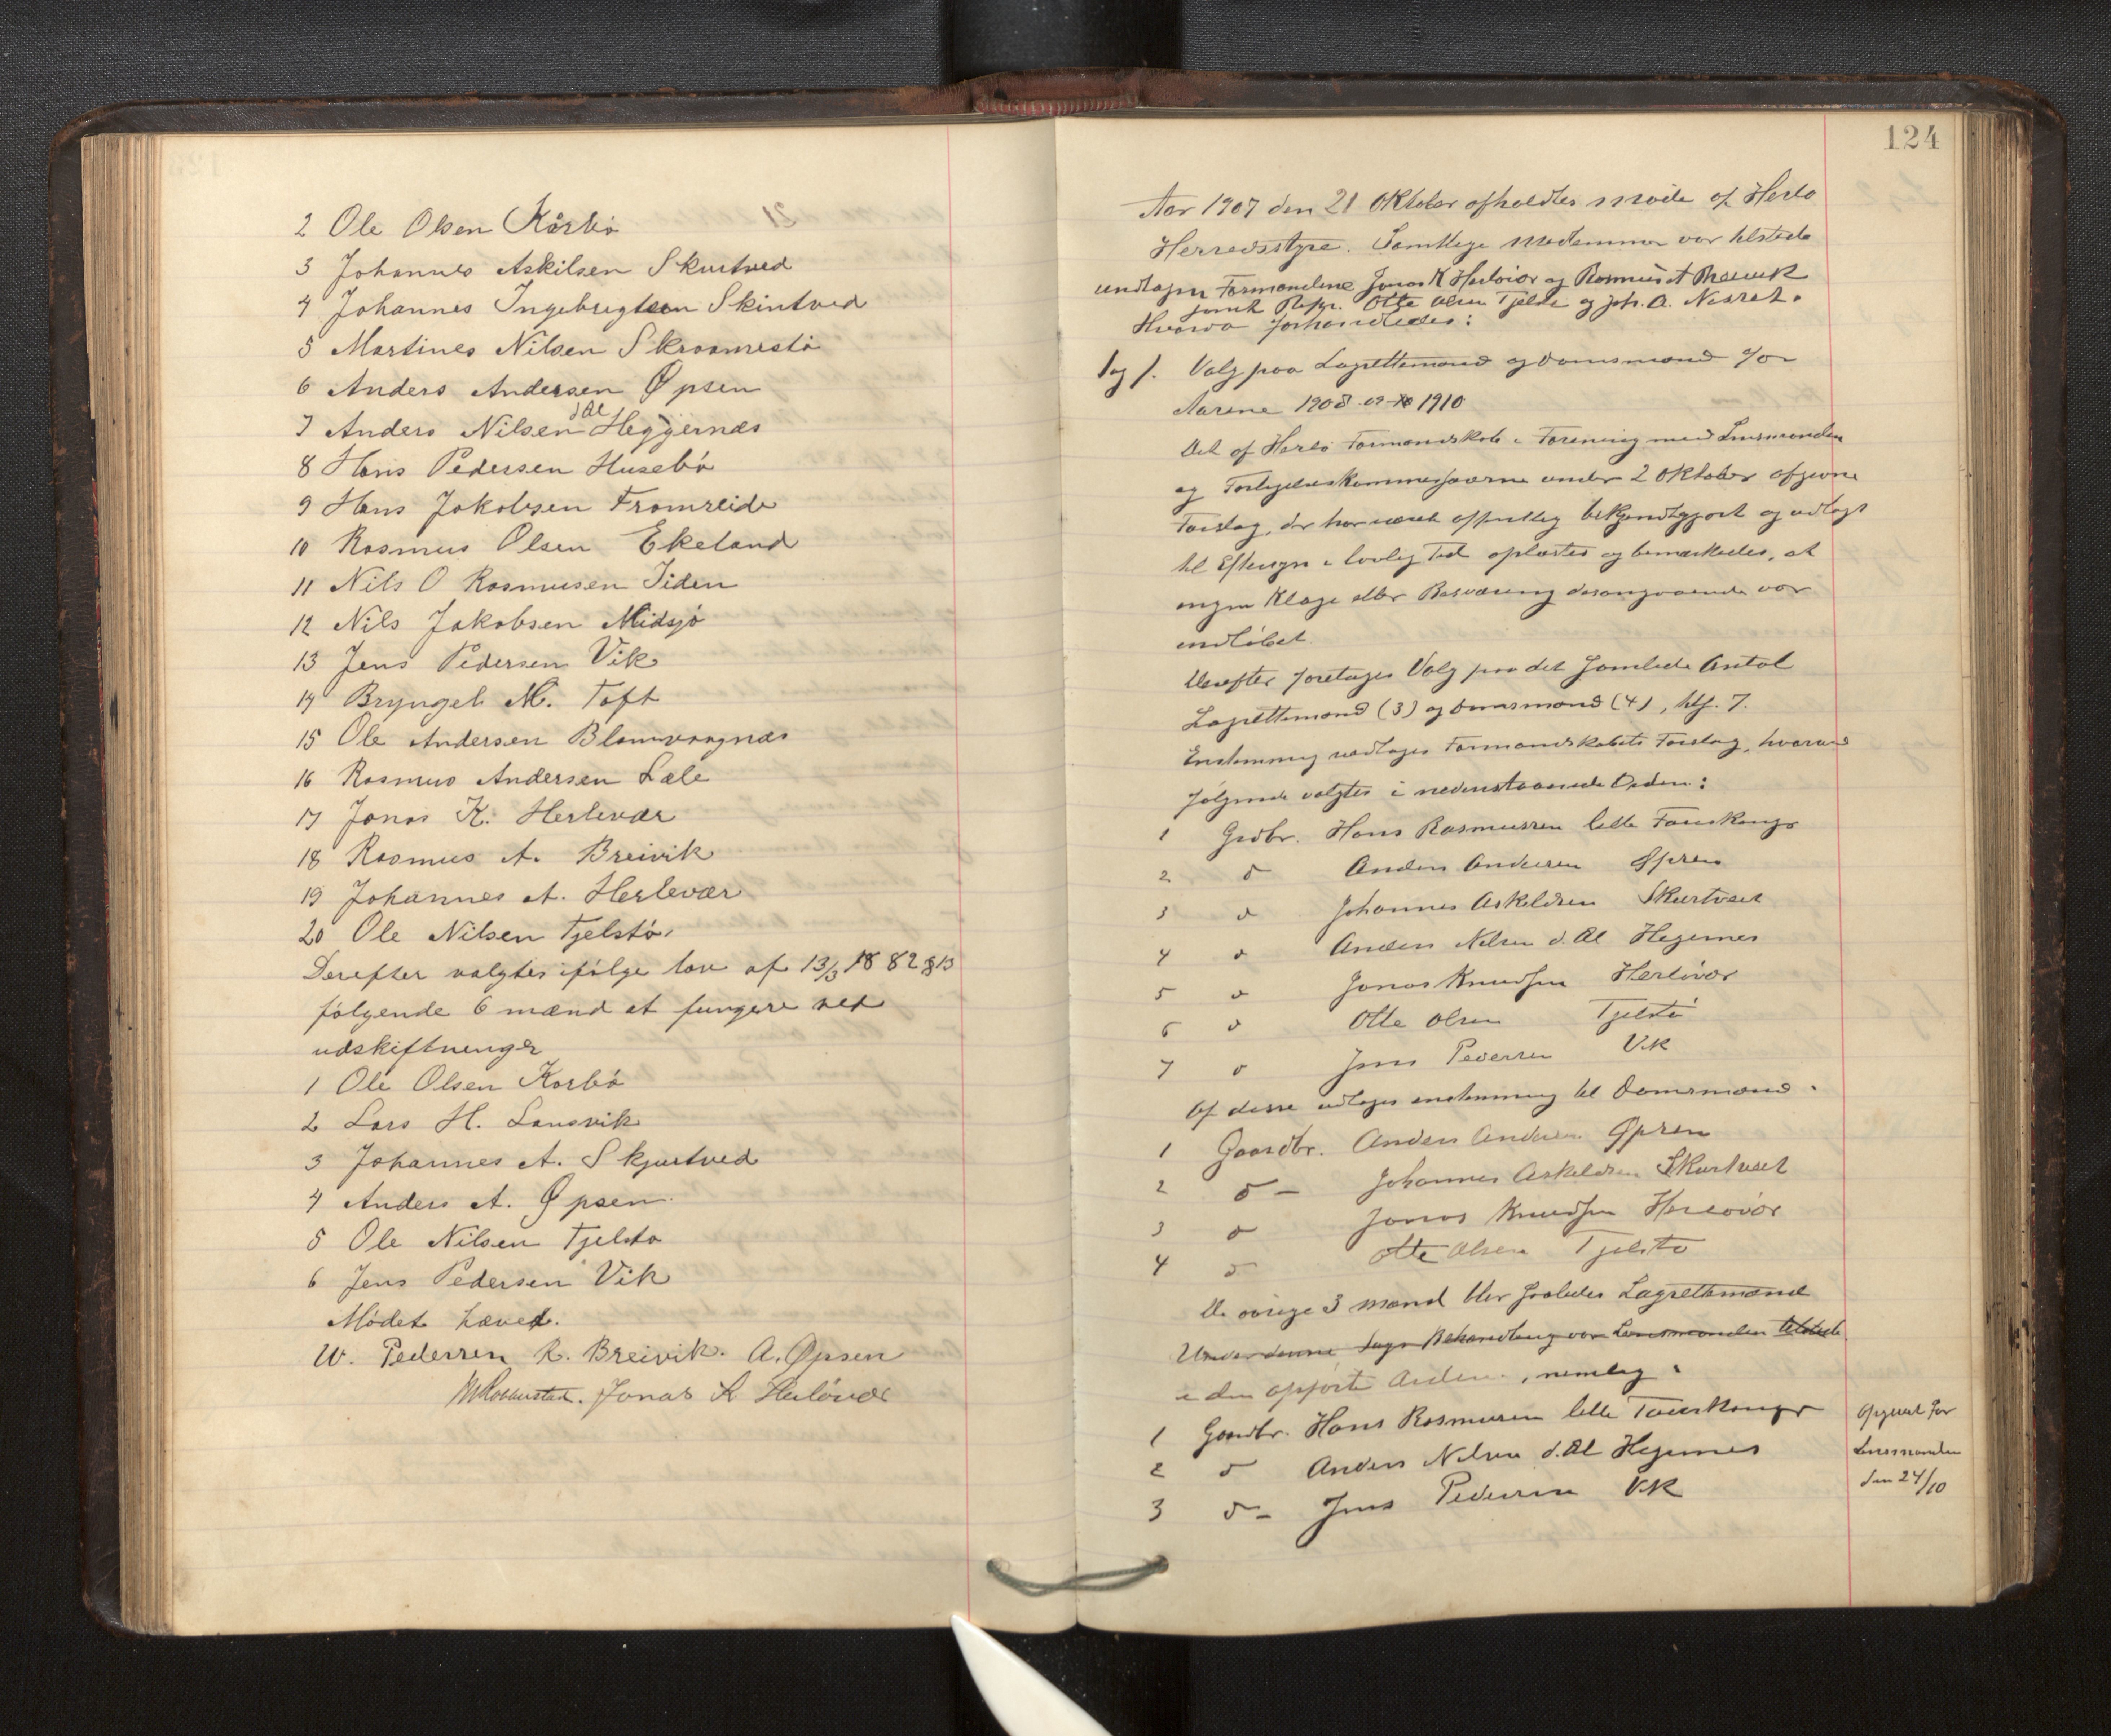 2 Ole Olsen Kårbø
3 Johannes Askilsen Skurtved
4 Johannes Ingebrigtsen Skintved
5 Martines Nilsen Skroamestø
6 Anders Andersen Øpsen
7 Anders Nilsen d Æl Heggernæs
8 Hans Pedersen Husebø
9 Hans Jakobsen Fromreide
10 Rasmus Olsen Ekeland
11 Nils O Rasmusen Tiden
12 Nils Jakobsen Midsjø
13 Jens Pedersen Vik
14 Bryngel M. Toft
15 Ole Andersen Blomvaagnæs
16 Rasmus Andersen Sæle
17 Jonas K. Herlevær
18 Rasmus A. Breivik
19 Johannes A. Herlevær
20 Ole Nilsen Tjelstø.
Derefter valgtes ifølge lov af 13/3 1882 § 13
følgende 6 mænd at fungere ved
udskiftninger
1 Ole Olsen Korbø
2 Lars H. Landsvik
3 Johannes A. Skjurtved
4 Anders A. Øpsen
5 Ole Nilsen Tjelsto
6 Jens Pedersen Vik
Mødet hævet.
W. Pedersen R. Breivik. A. Øpsen
Jonas K Herløvær
124
Aar 1907 den 21 Oktober afholdtes møde af Herlø
Herredsstyre. Samtlige Medlemmer var tilstede
undtagen Formændene Jonas K Herløvær og Rasmus A Breivik
samt Repr. Otte Olsen Tjelstø og Joh. A.
Hvorva forhandledes:
Sag 1. Valg paa Lagrettemænd og Domsmænd for
Aarene 1908-09-1910
Det af Herlø Formandskab i Forening med Lensmanden
og Forligelseskommissærerne under 2 Oktober afgivne
Forslag, der har været offentlig bekjendtgjort og udlagt
til Eftersyn i lovlig Tid oplæstes og bemærkedes, at
ingen Klage eller Besværing desangaaende var
indløbet.
Derefter foretages Valg paa det samlede Antal
Lagrettemænd (3) og Domsmænd (4), tils. 7.
Enstemmig vedtages Formandskabets Forslag, hvorved
følgende valgtes i nedenstaaende Orden:
1 Grdbr. Hans Rasmussen lille Fauskanger
2 do Anders Andersen Øpsen
3 do Johannes Askildsen Skurtveit
4 do Anders Nilsen d. Æl Hegernes
5 do Jonas Knudsen Herløvær
6 do Otte Olsen Tjelstø
7 do Jens Pedersen Vik
Af disse udtages enstemmig til Domsmænd.
1 Gaardbr. Anders Andersen Øpsen
2 do – Johannes Askeldsen Skurtveit
3 do Jonas Knudsen Herløvær
4 do Otte Olsen Tjelstø
De øvrige 3 mænd blir saaledes Lagrettemænd
Under denne Sags Behandling var Lensmanden tilstede
i den opførte Orden, nemlig:
1 Gaardbr. Hans Rasmussen lille Fauskanger
2 do Anders Nilsen d. Æl Hegernes
3 do – Jens Pedersen Vik
Opgivet for
Lensmanden
den 24/10